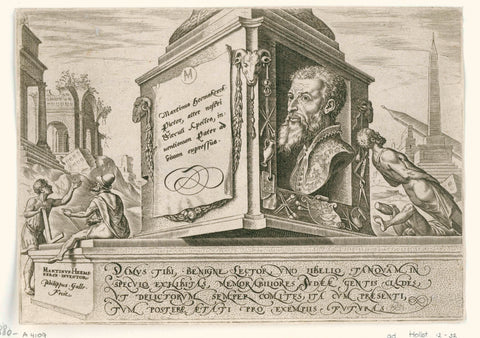 M
Martinus Heemskerck
Pictor, alter nostri
Sæculi Apelles, in
uentionum Pater ad
viuum expressus.
MARTINVS HEEMS
KERCK INVENTOR.
Philippus Galle
Fecit.
DAMVS TIBI, BENIGNE LECTOR, VNO LIBELLO TANQVAM IN
SPECVLO EXHIBITAS, MEMORABILIORES IVDEÆ GENTIS CLADES,
VT DELICTORVM SEMPER COMITES, ITA CVM PRÆSENTI,
TVM POSTERÆ ÆTATI PRO EXEMPLIS FVTVRAS.
A 4109
ad Hollst